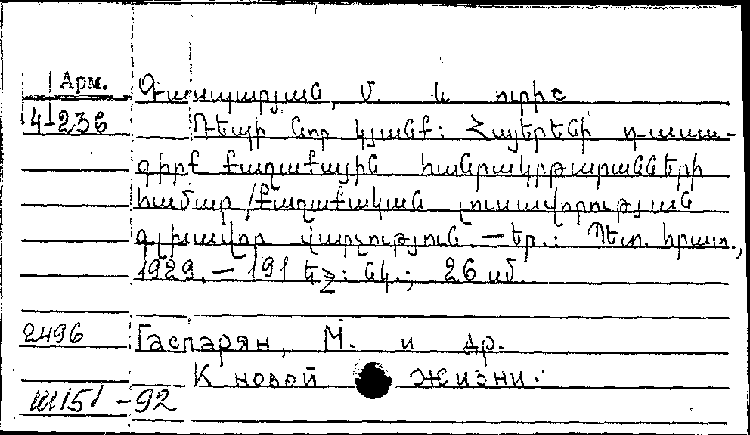 Арм.
4-236
Գասպարյան, Մ. և ուրիշ
Դեպի նոր կյանք: Հայերենի դասա-
գիրք քաղաքային հանրակրթարանների
համար /Քաղաքական լուսավորության
գլխավոր վարչություն. — Եր.: Պետ. հրատ.,
1929. — 191 եջ: նկ.; 26 սմ.
2496
Гаспарян, М. и др.
К новой жизни.
ш151-92